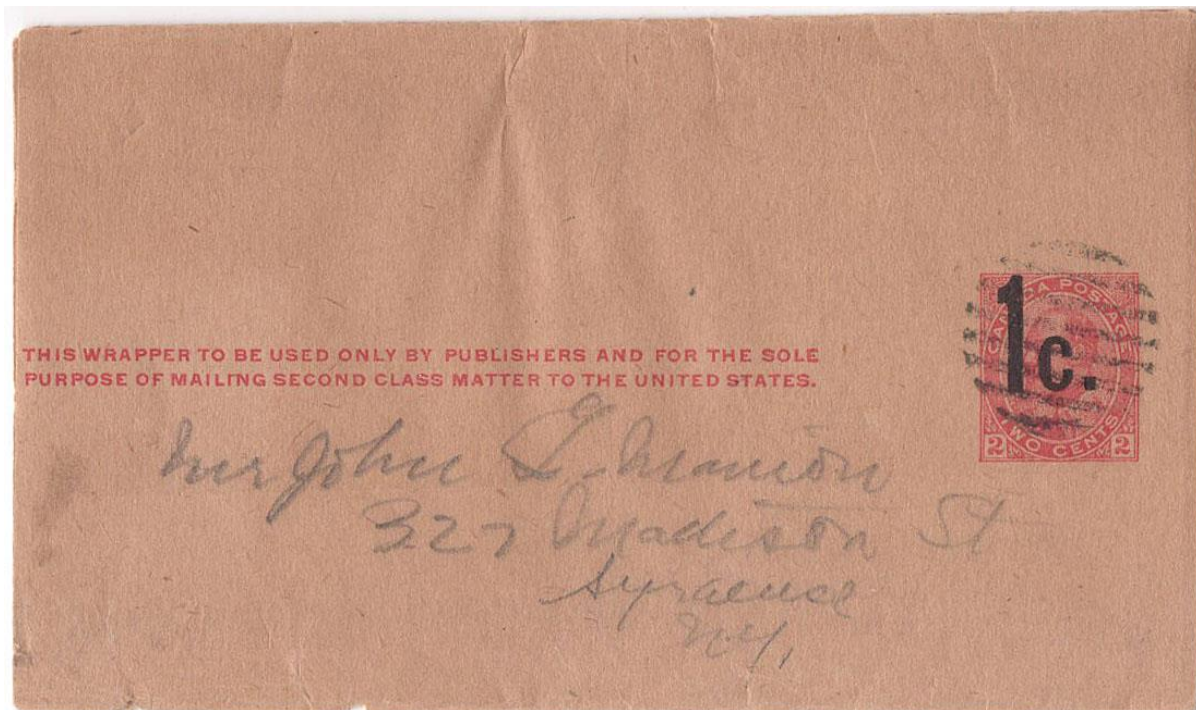 THIS WRAPPER TO BE USED ONLY BY PUBLISHERS AND FOR THE SOLE
PURPOSE OF MAILING SECOND CLASS MATTER TO THE UNITED STATES.
CANADA POSTAGE
1c.
2 TWO CENTS 2
Mr John F. Manion
327 Madison St
Syracuse
N.Y.